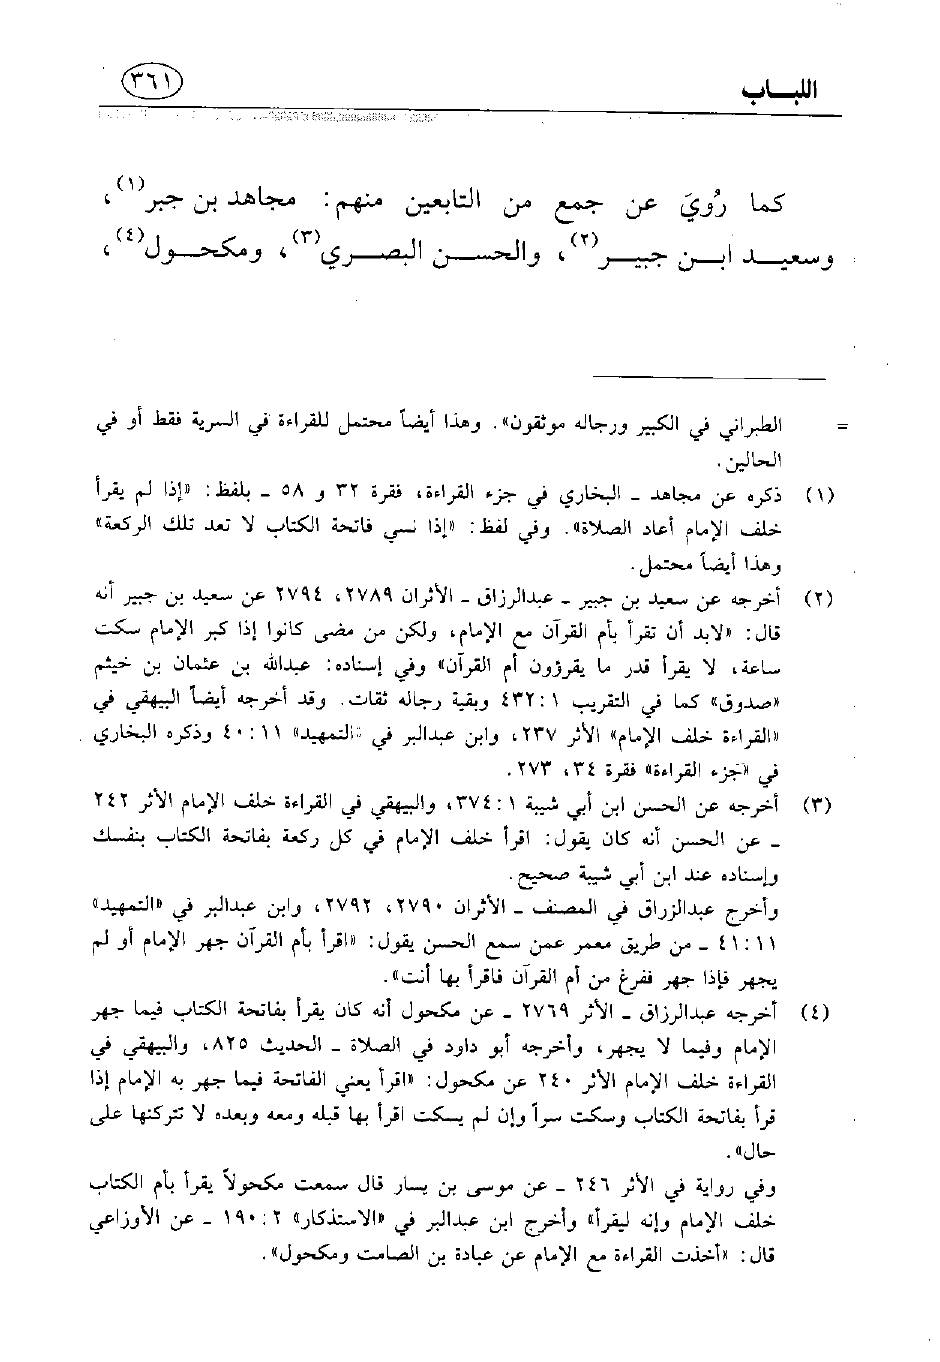 اللبـــاب
٣٦١
كما رُويَ عن جمع من التابعين منهم: مجاهد بن جبر(١)،
وسعيـــد ابـــن جبيـــر(٢)، والحســـن البصـــري(٣)، ومكحـــول(٤)،
= الطبراني في الكبير ورجاله موثقون». وهذا أيضاً محتمل للقراءة في السرية فقط أو في
الحالين.
(١) ذكره عن مجاهد ـ البخاري في جزء القراءة، فقرة ٣٢ و ٥٨ ـ بلفظ: «إذا لم يقرأ
خلف الإمام أعاد الصلاة». وفي لفظ: «إذا نسي فاتحة الكتاب لا تعد تلك الركعة»
وهذا أيضاً محتمل.
(٢) أخرجه عن سعيد بن جبير ـ عبدالرزاق ـ الأثران ٢٧٨٩، ٢٧٩٤ عن سعيد بن جبير أنه
قال: «لابد أن تقرأ بأم القرآن مع الإمام، ولكن من مضى كانوا إذا كبر الإمام سكت
ساعة، لا يقرأ قدر ما يقرؤون أم القرآن» وفي إسناده: عبدالله بن عثمان بن خيثم
«صدوق» كما في التقريب ١: ٤٣٢ وبقية رجاله ثقات. وقد أخرجه أيضاً البيهقي في
«القراءة خلف الإمام» الأثر ٢٣٧، وابن عبدالبر في «التمهيد» ١١: ٤٠ وذكره البخاري
في «جزء القراءة» فقرة ٣٤، ٢٧٣.
(٣) أخرجه عن الحسن ابن أبي شيبة ١: ٣٧٤، والبيهقي في القراءة خلف الإمام الأثر ٢٤٢
ـ عن الحسن أنه كان يقول: اقرأ خلف الإمام في كل ركعة بفاتحة الكتاب بنفسك
وإسناده عند ابن أبي شيبة صحيح.
وأخرج عبدالزراق في المصنف ـ الأثران ٢٧٩٠، ٢٧٩٢، وابن عبدالبر في «التمهيد»
١١: ٤١ ـ من طريق معمر عمن سمع الحسن يقول: «اقرأ بأم القرآن جهر الإمام أو لم
يجهر فإذا جهر ففرغ من أم القرآن فاقرأ بها أنت».
(٤) أخرجه عبدالرزاق ـ الأثر ٢٧٦٩ ـ عن مكحول أنه كان يقرأ بفاتحة الكتاب فيما جهر
الإمام وفيما لا يجهر، وأخرجه أبو داود في الصلاة ـ الحديث ٨٢٥، والبيهقي في
القراءة خلف الإمام الأثر ٢٤٠ عن مكحول: «اقرأ يعني الفاتحة فيما جهر به الإمام إذا
قرأ بفاتحة الكتاب وسكت سراً وإن لم يسكت اقرأ بها قبله ومعه وبعده لا تتركنها على
حال».
وفي رواية في الأثر ٢٤٦ ـ عن موسى بن يسار قال سمعت مكحولاً يقرأ بأم الكتاب
خلف الإمام وإنه ليقرأ» وأخرج ابن عبدالبر في «الاستذكار» ٢: ١٩٠ ـ عن الأوزاعي
قال: «أخذت القراءة مع الإمام عن عبادة بن الصامت ومكحول».